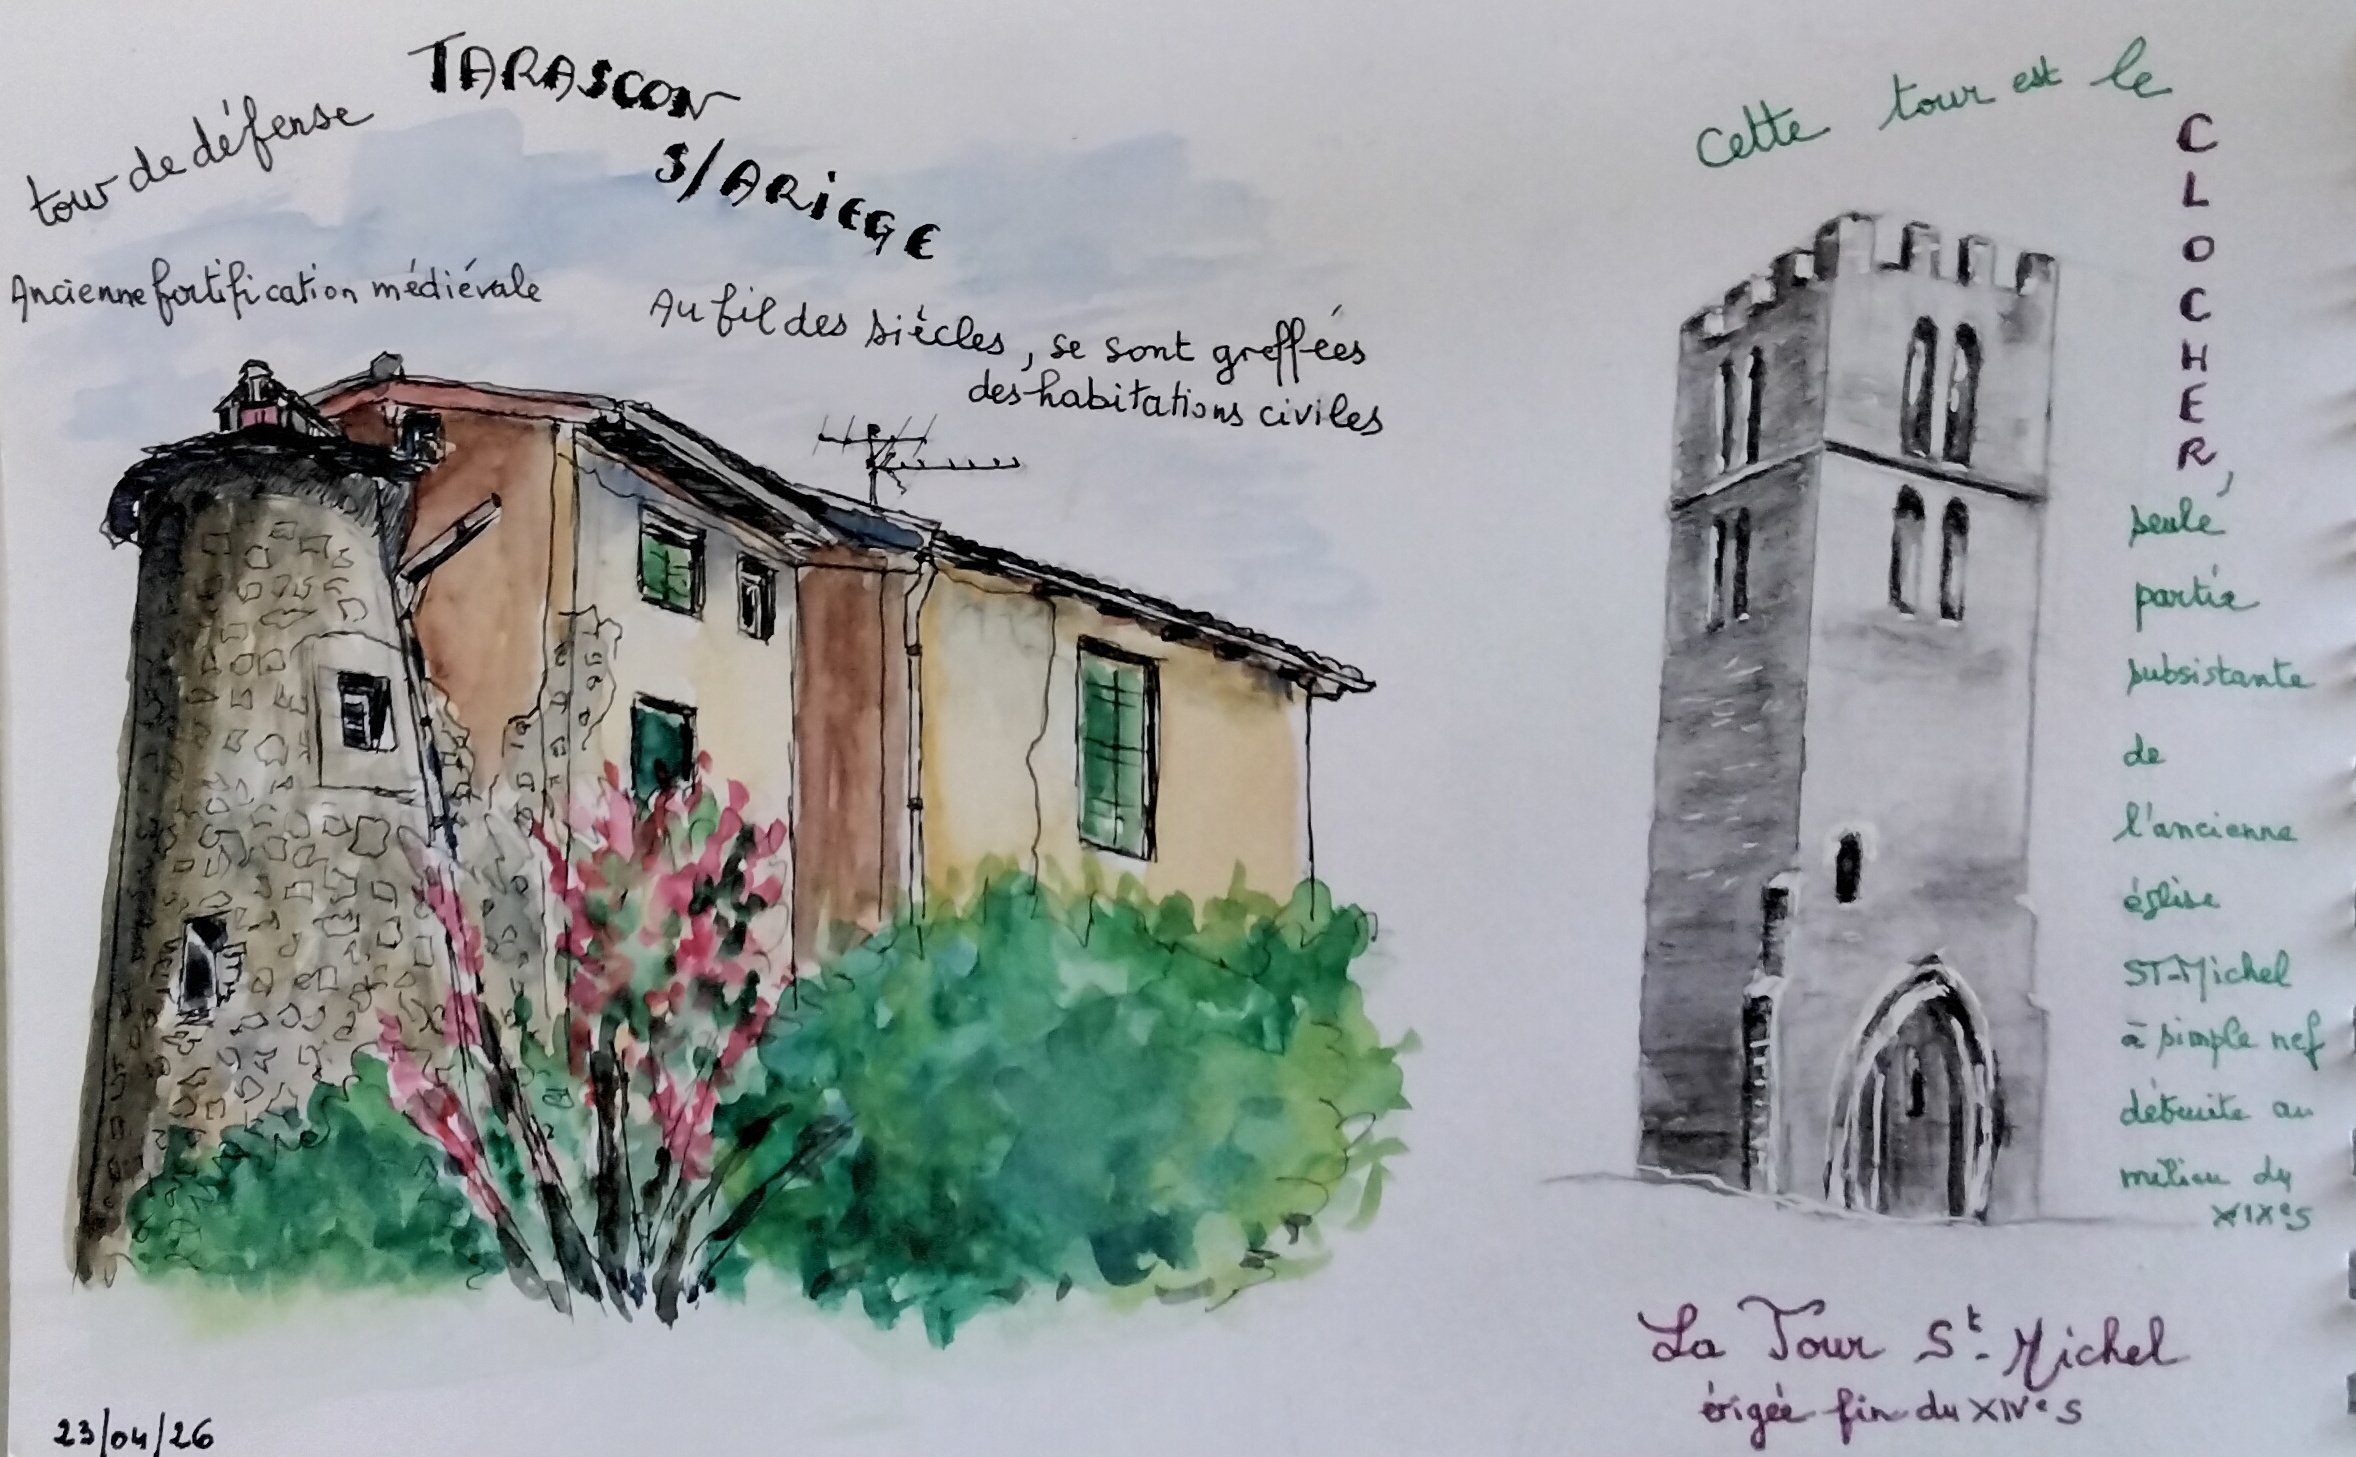 TARASCON
S/ARIEGE
tour de défense
Ancienne fortification médiévale
Au fil des siècles, se sont greffées
des habitations civiles
23/04/26
Cette tour est le
CLOCHER,
seule
partie
subsistante
de
l'ancienne
église
ST-Michel
à simple nef
détruite au
milieu du
XIXe S
La Tour St-Michel
érigée fin du XIVe S